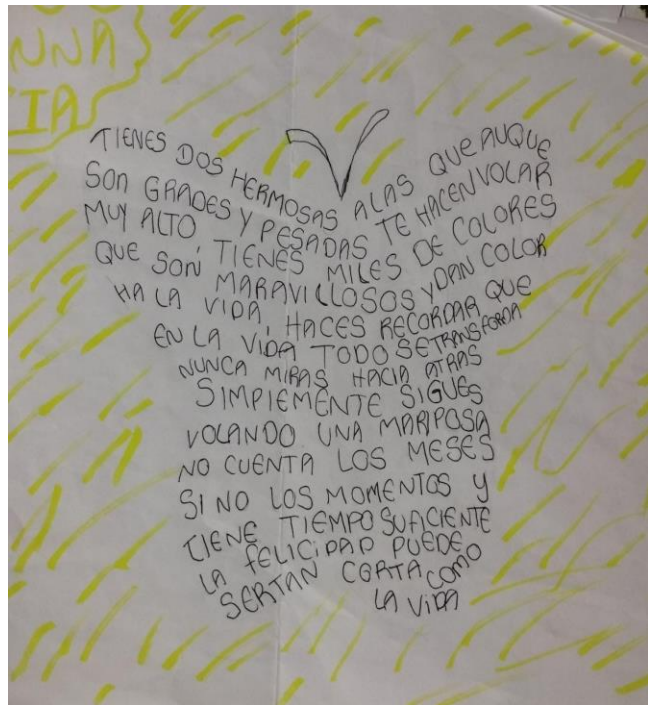 NNA
IA
TIENES DOS HERMOSAS ALAS QUE AUQUE
SON GRADES Y PESADAS TE HACEN VOLAR
MUY ALTO, TIENES MILES DE COLORES
QUE SON MARAVILLOSOS Y DAN COLOR
HA LA VIDA, HACES RECORDAR QUE
EN LA VIDA TODO SE TRANSFORMA
NUNCA MIRAS HACIA ATRAS
SIMPLEMENTE SIGUES
VOLANDO UNA MARIPOSA
NO CUENTA LOS MESES
SI NO LOS MOMENTOS Y
TIENE TIEMPO SUFICIENTE
LA FELICIDAD PUEDE
SER TAN CORTA COMO
LA VIDA